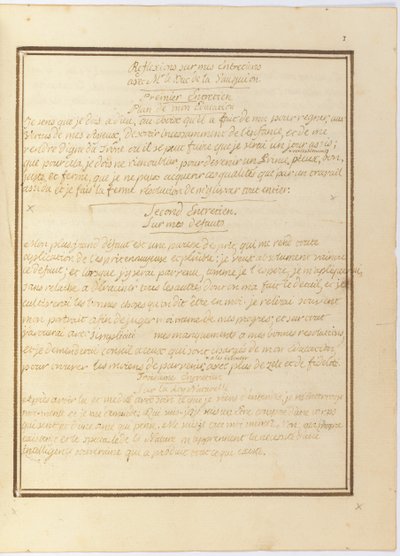 1
Réflexions sur mes Entretiens
avec Mr le Duc de la Vauguion
Premier Entretien
Plan de mon Education
Je sens que je dois à Dieu, au choix qu'il a fait de moi pour regner, aux
vertus de mes Ayeux, de sortir incessamment de l'enfance, et de me
rendre digne du Trône où il se peut faire que je serai un jour assis;
que pour cela je dois ne rien oublier pour devenir un Prince pieux, bon,
juste, et ferme, que je ne puis acquerir ces qualités que par un travail
assidu et je fais la ferme résolution de m'y livrer tout entier.
Second Entretien.
Sur mes défauts
Mon plus grand défaut est une paresse d'esprit, qui me rend toute
application de l'esprit ennuyeuse et pénible; je veux absolument vaincre
ce défaut; et lorsque j'y serai parvenu, comme je l'espere, je m'appliquerai
sans relache à déraciner tous les autres dont on m'a fait le détail, et je
cultiverai les bonnes choses qu'on dit être en moi. je relirai souvent
mon portrait afin de juger de mes progrès; et sur tout
j'avouerai avec simplicité mes manquements à mes bonnes resolutions,
et je demanderai conseil à ceux qui sont chargés de mon Education
pour trouver les moiens de parvenir, avec plus de zele et de fidélité.
Troisieme Entretien
Sur la Loy Naturelle
Après avoir lu et medité avec soin ce que je viens d'entendre, je m'interroge
moi-même et je me demande: Que suis-je? un être composé d'un corps
qui sent et d'une ame qui pense. Me suis-je créé moi même? Non
et le spectacle de la Nature m'apprennent la necessité d'une
intelligence souveraine qui a produit tout ce qui existe.